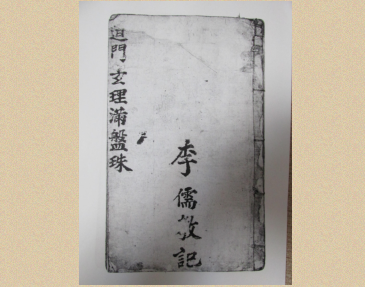 迫門玄理滿盤珠
李儒敬記